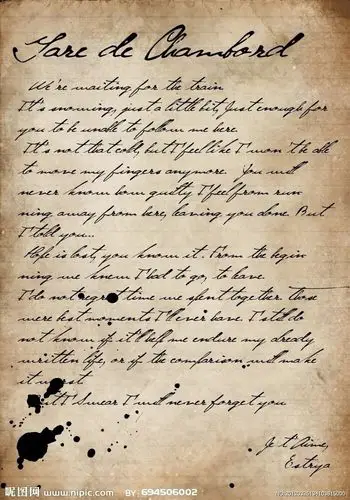 Gare de Chambord
We're waiting for the train
It's snowing, just a little bit, just enough for
you to be unable to follow me here.
It's not that cold, but I feel like I won't be able
to move my fingers anymore. You will
never know how guilty I feel from run
ning away from here, leaving you alone. But
I told you...
Hope is lost, you know it. From the begin
ning, we knew I had to go, to leave.
I do not regret time we spent together. Those
were best moments I'll ever have. I still do
not know if it'll help me endure my already
written life, or if the comparison will make
it worst
But I swear I will never forget you
Je t'Aime,
Estrya
昵图网 www.nipic.com BY: 694506002